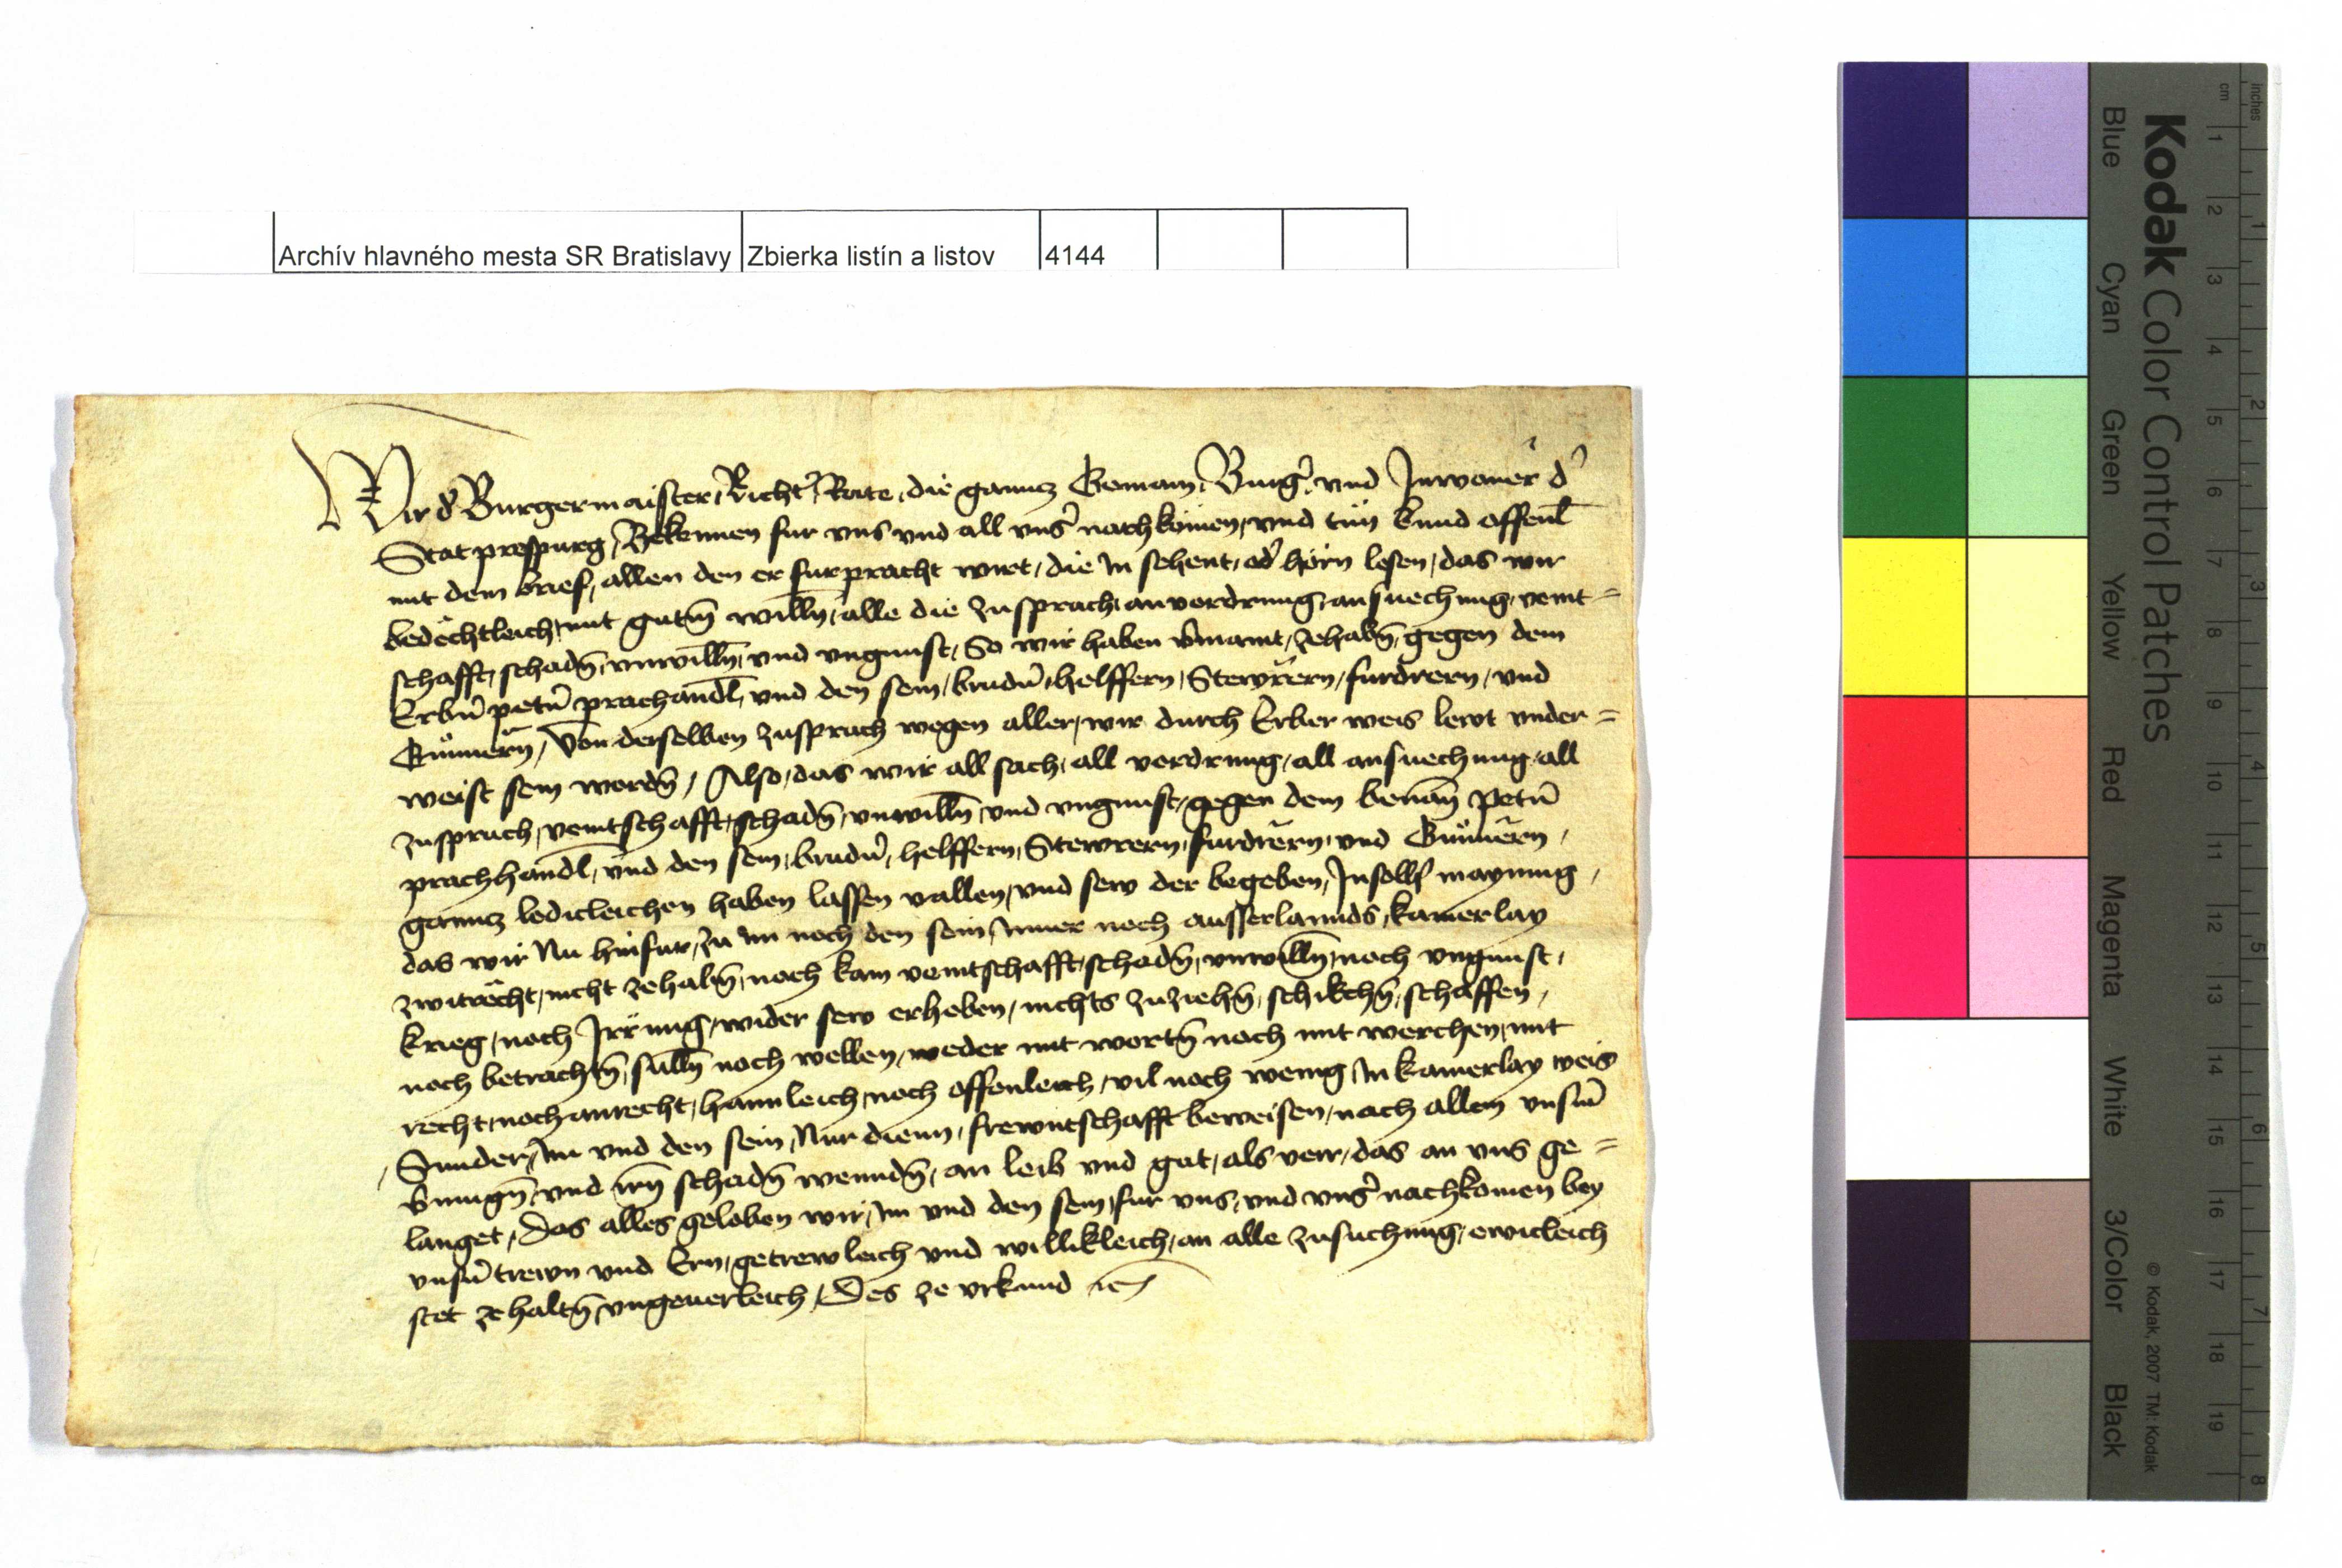 Archív hlavného mesta SR Bratislavy Zbierka listín a listov 4144
Wir d' Burgermaister, Richt', Rate, die gancz Gemain, Burg', vnd Inwoner d'
Stat prespurg, Bekennen fur vns vnd all vns' nachkömen, vnd tün kund offenl
mit dem brief, allen den er furpracht wirt, die In sehent, od' hörn lesen, das wir
bedéchtleich, mit gutm willn, alle die zusprach, anvordrung, ansuechung, veint=
schafft, schadn, vnwilln, vnd vngunst, So wir haben v'maint, zehabn, gegen dem
Erbn' pet'n prachandl, vnd den sein, brud'n, helffern, Stewrern, furdrern, vnd
Günnern, Von derselben zusprach wegen aller, wir durch Erber weis lewt vnder=
weist sein wordn, Also, das wir all sach, all vordrung, all ansuechung, all
zusprach, veintschafft, schadn, vnwilln, vnd vngunst, gegen dem benan pet'n
prachhandl, vnd den sein, brud'n, helffern, Stewrern, furdrern, vnd Günnern,
gancz ledicleichen haben lassen vallen, vnd sew der begeben, In soll' maynung,
das wir Nu hinfur, zu im noch den sein, Inner noch ausserlannds, kainerlay
zwitrécht, nicht zehabn, noch kain veintschafft, schadn, vnwilln, noch vngunst,
krieg, noch Irrung, wider sew erheben, nichts zuziehn, schikchn, schaffen,
noch betrachtn, sulln noch wellen, weder mit wortn noch mit werchen, mit
recht, noch anrecht, haimleich, noch offenleich, vil noch wenig, In kainerlay weis
Sunder, Im vnd den sein, Nur dienn, frewntschafft beweisen, nach allem vnsm'
vermugn, vnd irn schadn wenndn, an leib vnd gut, als verr, das an vns ge=
langet, Das alles geloben wir, Im vnd den sein, fur vns, vnd vns' nachkomen bey
vnsn' trewn vnd Ern, getrewleich vnd willikleich, an alle zusuchung, ewicleich
stet ze haltn, vngeuerleich, Des ze vrkund etc
Kodak Color Control Patches
Blue Cyan Green Yellow Red Magenta White 3/Color Black
© Kodak, 2007 TM: Kodak
inches 1 2 3 4 5 6 7 8
cm 1 2 3 4 5 6 7 8 9 10 11 12 13 14 15 16 17 18 19